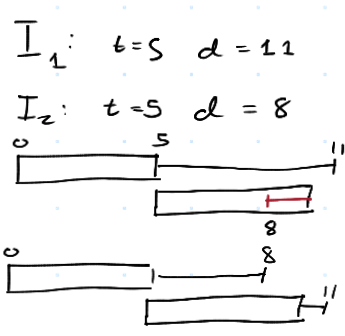 I₁: t=5 d = 11
I₂: t=5 d = 8
0 5 11
8
0 8
11